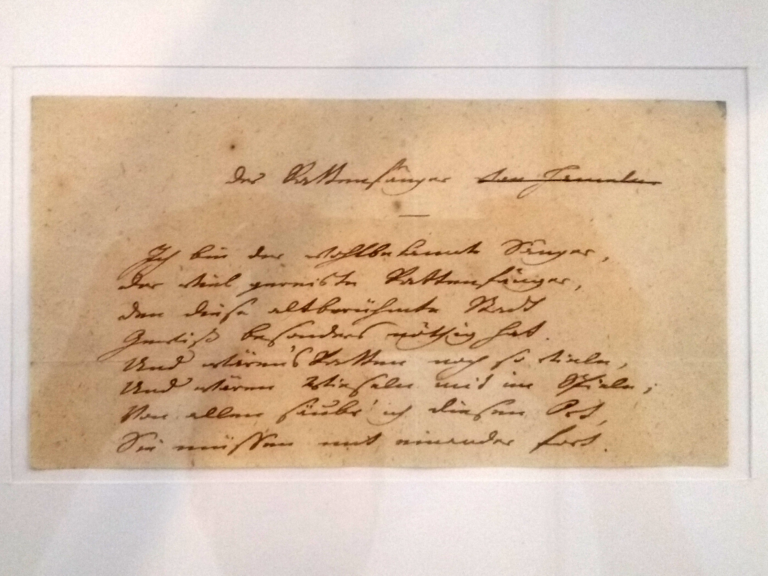 Der Rattenfänger von Hameln
Ich bin der wohlbekannte Sänger,
Der viel gereiste Rattenfänger,
Den diese altberühmte Stadt
Gewiß besonders nöthig hat.
Und wären's Ratten noch so viele,
Und wären Wieseln mit im Spiele;
Von allen säubr' ich diesen Ort,
Sie müssen mit einander fort.